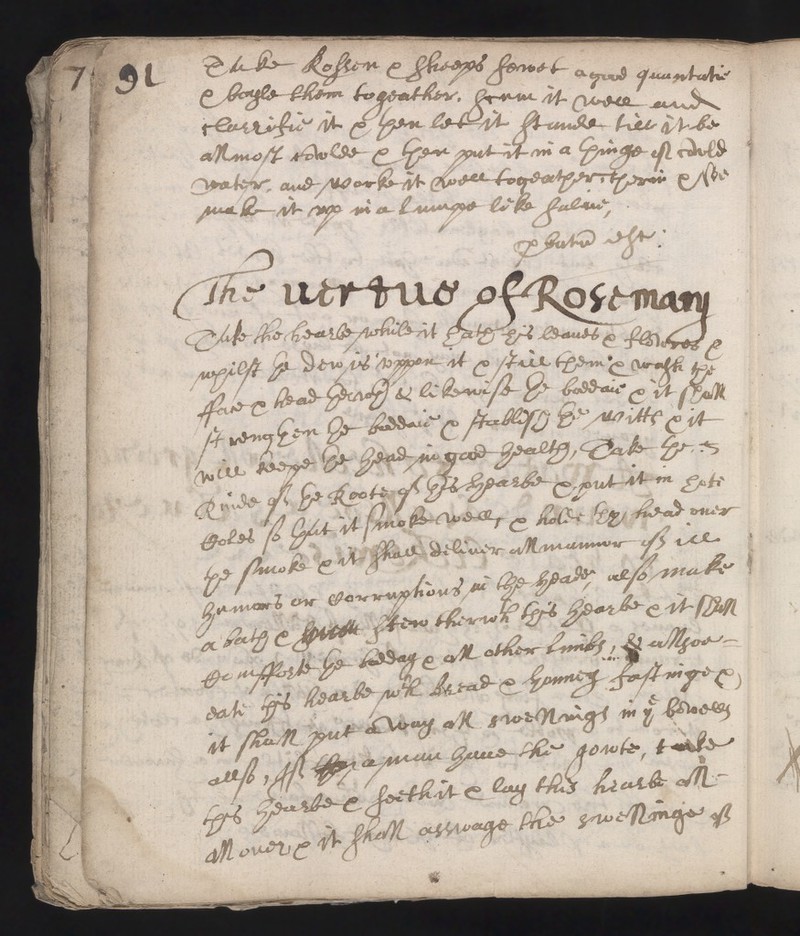 7 91
Take Rossen & sheeps sewet a good quantatie
& boyle them togeather. scum it well and
clarrifie it & then let it stande till it be
allmost cowlde & then put it in a thinge of cowld
water. and worke it well togeather therin & soe
make it up in a lumpe like salue,
probatū est:
The uertue of Rosemary
Take the hearbe while it hath his leaues & flowres &
whilst the dew is uppon it & still them & wash the
fface & head therwth & likewise the boddaie & it shall
strengthen the boddaie & stablish the witts & it
will keepe the head in good health, Take the
Rinde of the Roote of this hearbe & put it in hote
Coles so that it smoke well, & holde thy head ouer
the smoke & it shall deliuer all mannor of ill
humors or corruptions in the heade, also make
a bath & stew therwth this hearbe & it shall
Comfforte the bodday & all other limbs, & allsoe
eate this hearbe wth bread & honney fastinge &
it shall put away all swellings in ye bowells
allso, If a man haue the gowte, take
this hearbe & seeth it & lay this hearbe all
all ouer & it shall asswage the swellinge of